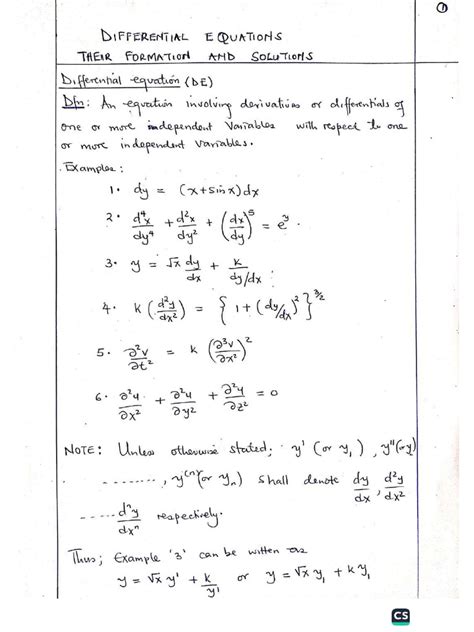 ①
DIFFERENTIAL EQUATIONS
THEIR FORMATION AND SOLUTIONS
Differential equation (DE)
Dfn: An equation involving derivatives or differentials of
one or more independent Variables with respect to one
or more independent variables.
Examples:
1. dy = (x+sinx)dx
2. d⁴x/dy⁴ + d²x/dy² + (dx/dy)⁵ = eʸ.
3. y = √x dy/dx + k/(dy/dx)
4. k (d²y/dx²) = {1+(dy/dx)²}^3/2
5. ∂²v/∂t² = k (∂³v/∂x²)²
6. ∂²u/∂x² + ∂²u/∂y² + ∂²u/∂z² = 0
NOTE: Unless otherwise stated; y' (or y₁), y''(or y)
........, y⁽ⁿ⁾(or yₙ) shall denote dy/dx, d²y/dx²
..... dⁿy/dxⁿ respectively.
Thus; Example '3' can be written as
y = √x y' + k/y' or y = √x y₁ + k y₁
CS